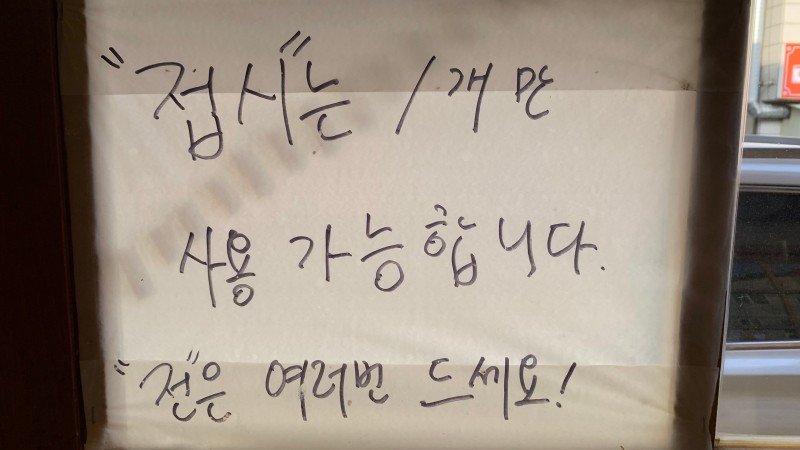 "접시"는 1개만
사용 가능합니다.
"전"은 여러번 드세요!